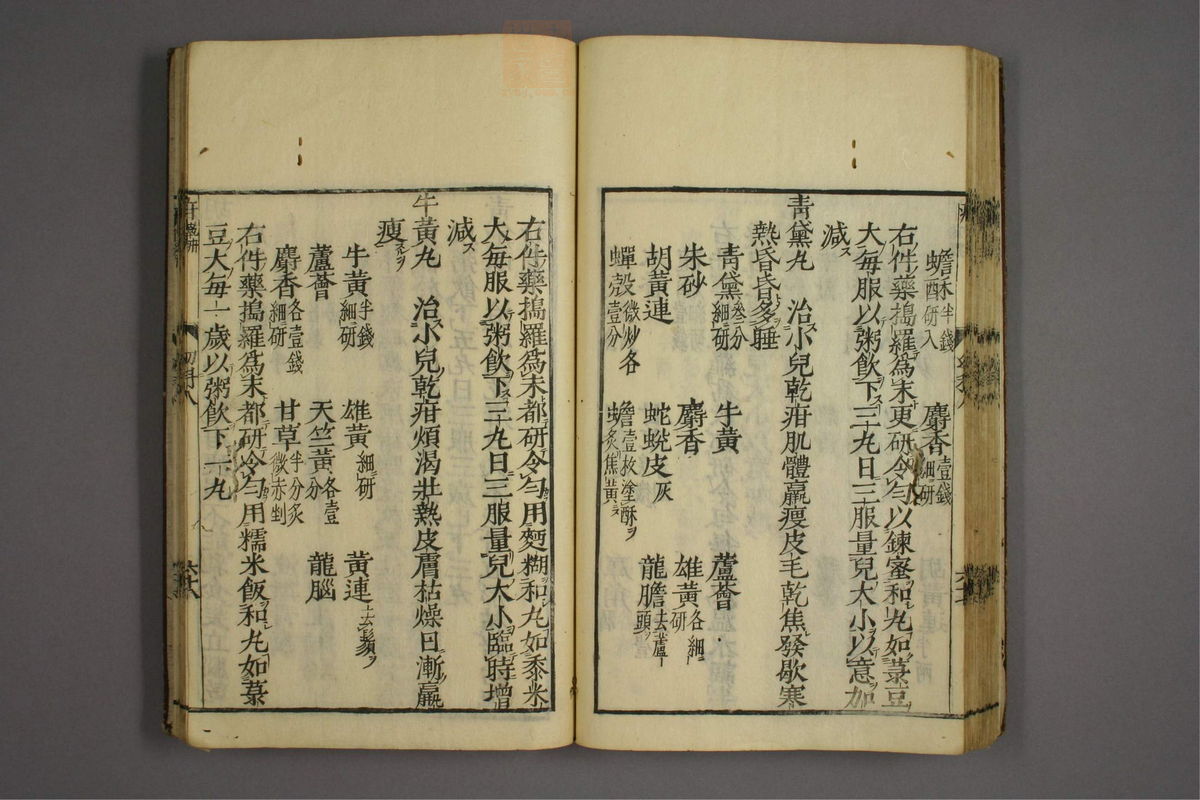 蟾酥半錢研入 麝香壹錢細研
右件藥搗羅爲末更研令勻以鍊蜜和丸如菉豆
大每服以粥飲下三丸日三服量兒大小以意加
減ス
青黛丸 治小兒乾疳肌體羸瘦皮毛乾焦發歇寒
熱昏昏多睡
青黛叁分細研 牛黃 蘆薈
朱砂 麝香 雄黃各細研
胡黃連 蛇蛻皮灰 龍膽去蘆頭
蟬殼微炒各壹分 蟾壹枚塗酥ヲ炙焦黃
右件藥搗羅爲末都研令勻用麪糊和丸如黍米
大每服以粥飲下三丸日三服量兒大小臨時增
減ス
牛黃丸 治小兒乾疳煩渴壯熱皮膚枯燥日漸羸
瘦
牛黃半錢細研 雄黃細研 黃連去鬚ヲ
蘆薈 天竺黃各壹分 龍腦
麝香各壹錢細研 甘草半分炙微赤剉
右件藥搗羅爲末都研令勻用糯米飯和丸如菉
豆大每一歲以粥飲下一丸